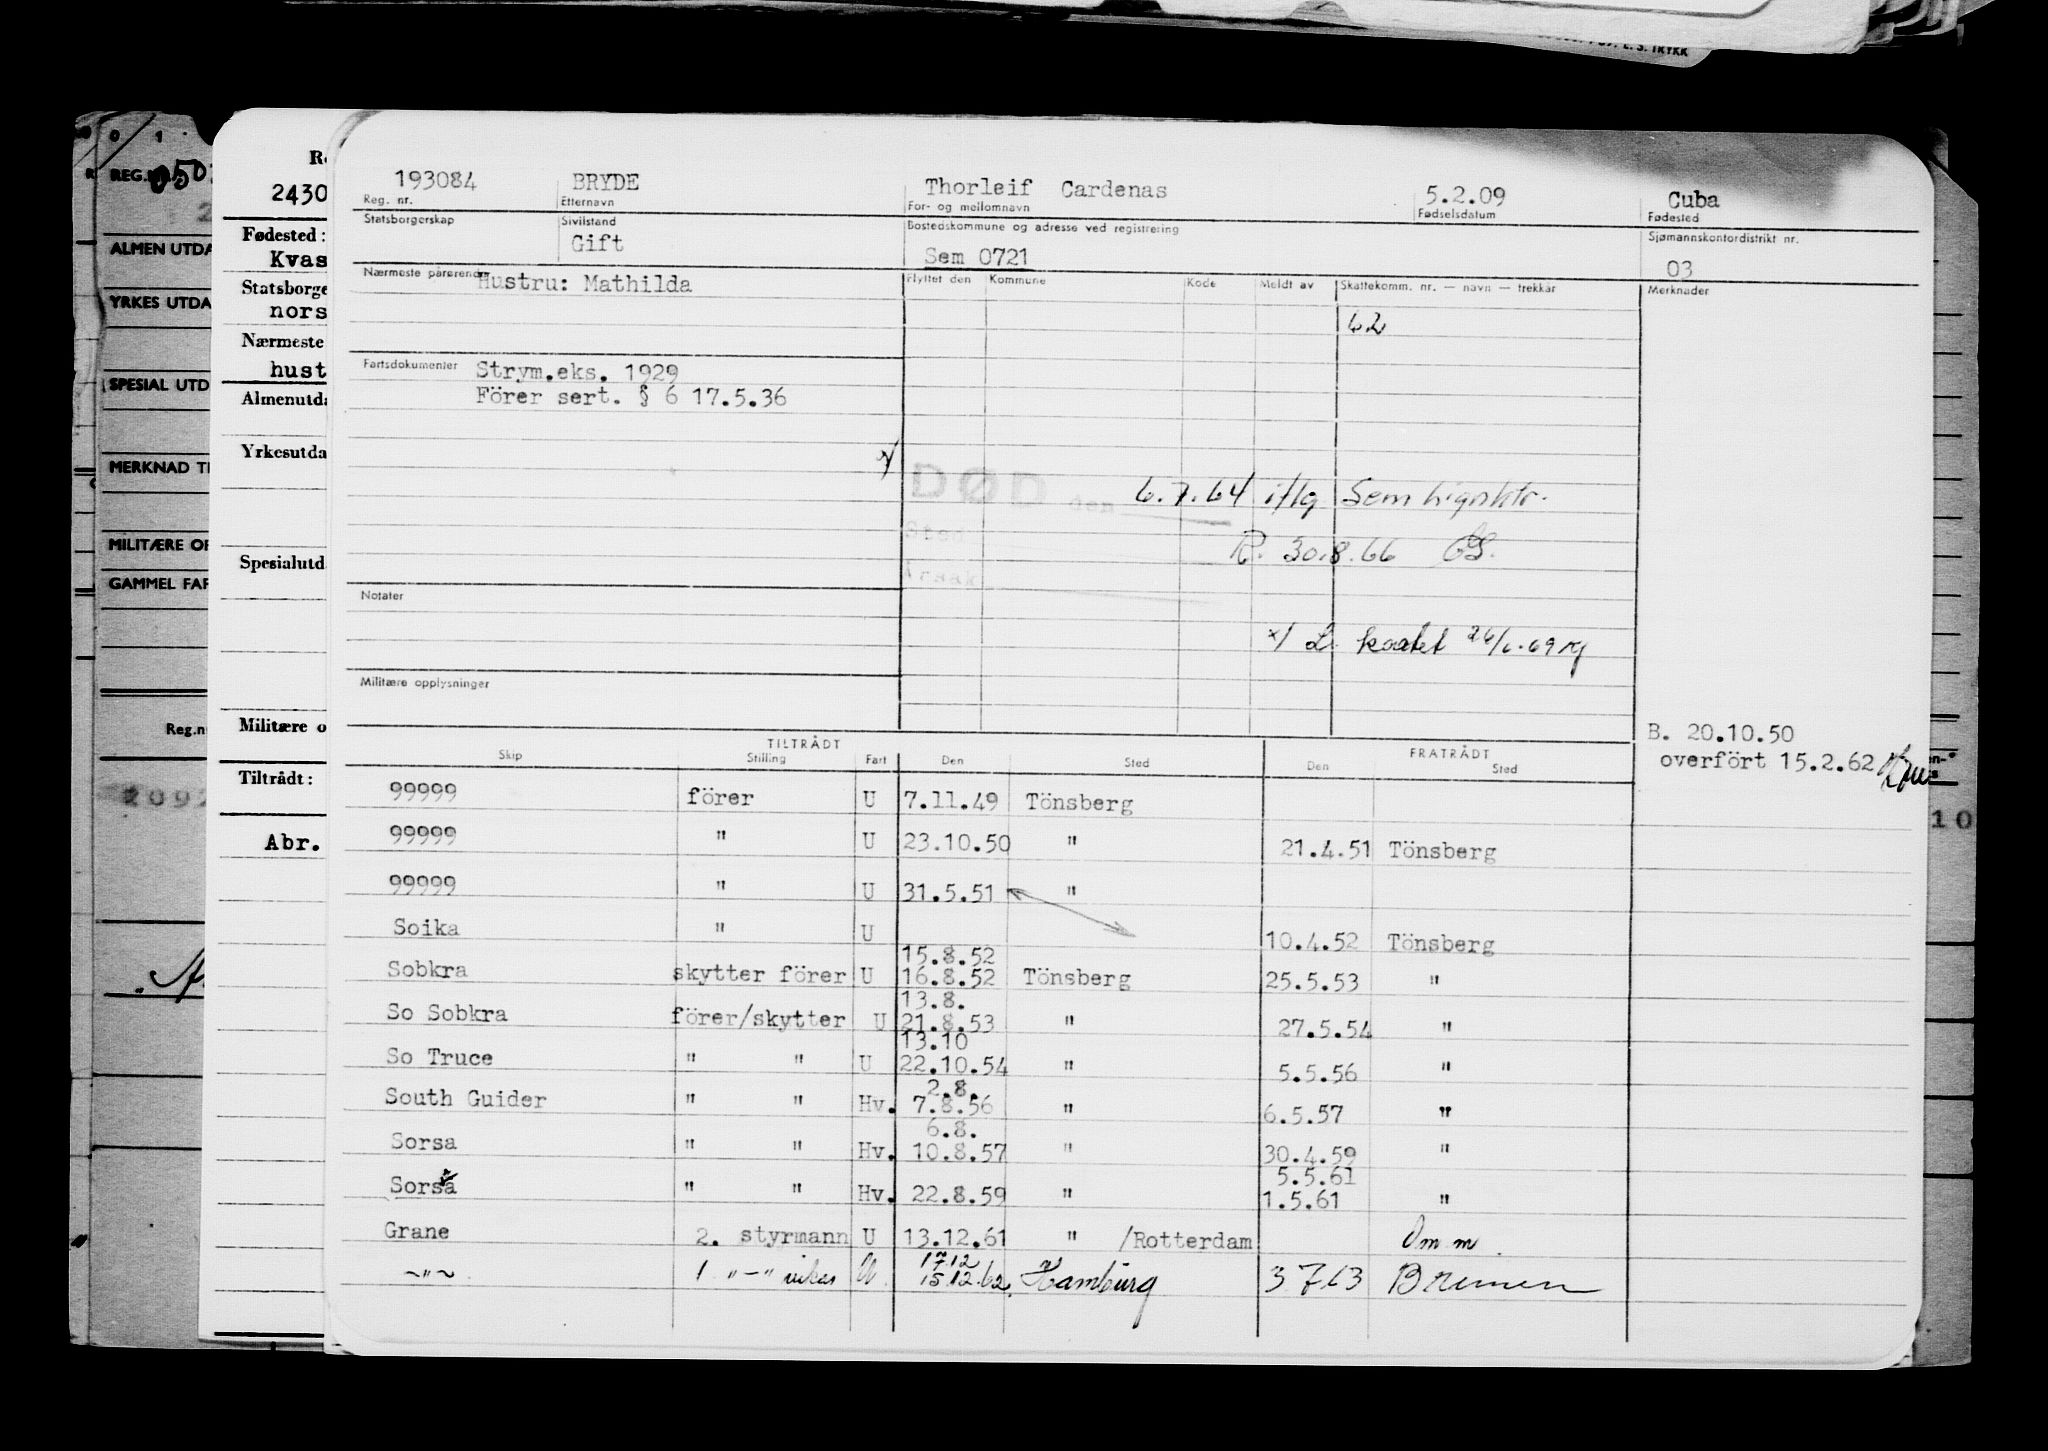 193084 BRYDE Thorleif Cardenas 5.2.09 Cuba
Reg. nr. Etternavn For- og mellomnavn Fødselsdatum Fødested
Statsborgerskap Sivilstand Bostedskommune og adresse ved registrering Sjømannskontordistrikt nr.
Gift Sem 0721 03
Nærmeste pårørende Hustru: Mathilda Flyttet den Kommune Kode Meldt av Skattekomm. nr. — navn — trekkår Merknader
62
Fartsdokumenter Strym.eks. 1929
Förer sert. § 6 17.5.36
DØD den 6.7.64 iflg Sem lignktr.
Sted R. 30.8.66
Årsak
Notater
x/ kortet 26/6.69
Militære opplysninger
B. 20.10.50
overfört 15.2.62
TILTRÅDT FRATRÅDT
Skip Stilling Fart Den Sted Den Sted
99999 förer U 7.11.49 Tönsberg
99999 " U 23.10.50 " 21.4.51 Tönsberg
99999 " U 31.5.51 "
Soika " U 10.4.52 Tönsberg
15.8.52
Sobkra skytter förer U 16.8.52 Tönsberg 25.5.53 "
13.8.
So Sobkra förer/skytter U 21.8.53 " 27.5.54 "
13.10
So Truce " " U 22.10.54 " 5.5.56 "
2.8.
South Guider " " Hv. 7.8.56 " 6.5.57 "
6.8.
Sorsa " " Hv. 10.8.57 " 30.4.59 "
5.5.61
Sorsa " " Hv. 22.8.59 " 1.5.61 "
Grane 2. styrmann U 13.12.61 " /Rotterdam Om m.
17.12
~"~ 1 "-" vikar U 15.12.62 Hamburg 3 7 63 Bremen
REG.NR.
ALMEN UTDA
YRKES UTDA
SPESIAL UTD
MERKNAD TI
MILITÆRE OP
GAMMEL FAR
Reg.n
2092
2430
Fødested:
Kvas
Statsborge
nors
Nærmeste
hust
Almenutda
Yrkesutda
Spesialutd
Militære o
Tiltrådt:
Abr.
10